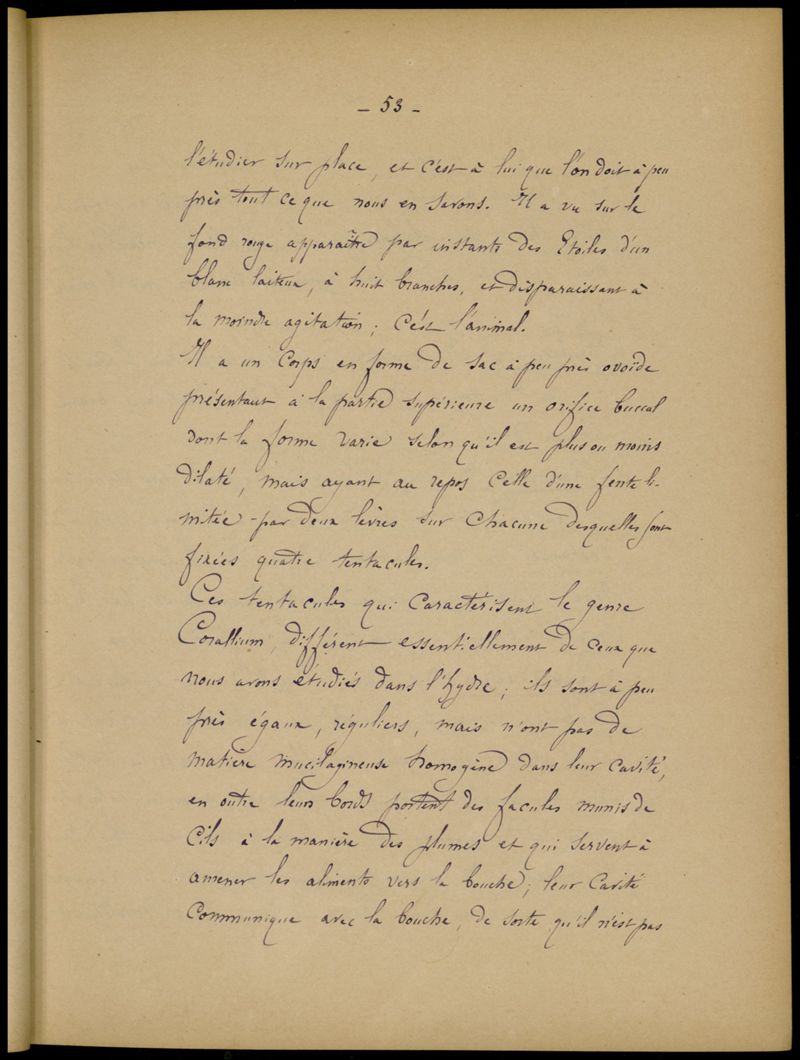 – 53 –
l'étudier sur place, et c'est à lui que l'on doit à peu
près tout ce que nous en savons. Il a vu sur le
fond rouge apparaître par instants des Etoiles d'un
blanc laiteux, à huit branches, et disparaissant à
la moindre agitation ; c'est l'animal.
Il a un corps en forme de sac à peu près ovoïde
présentant à la partie supérieure un orifice buccal
dont la forme varie selon qu'il est plus ou moins
dilaté, mais ayant au repos celle d'une fente li-
mitée par deux lèvres sur chacune desquelles sont
fixées quatre tentacules.
Ces tentacules qui caractérisent le genre
Corallium, diffèrent essentiellement de ceux que
nous avons étudiés dans l'hydre ; ils sont à peu
près égaux, réguliers, mais n'ont pas de
matière mucilagineuse homogène dans leur cavité,
en outre leurs bords portent des facules munis de
cils à la manière des plumes et qui servent à
amener les aliments vers la bouche ; leur cavité
communique avec la bouche, de sorte qu'il n'est pas